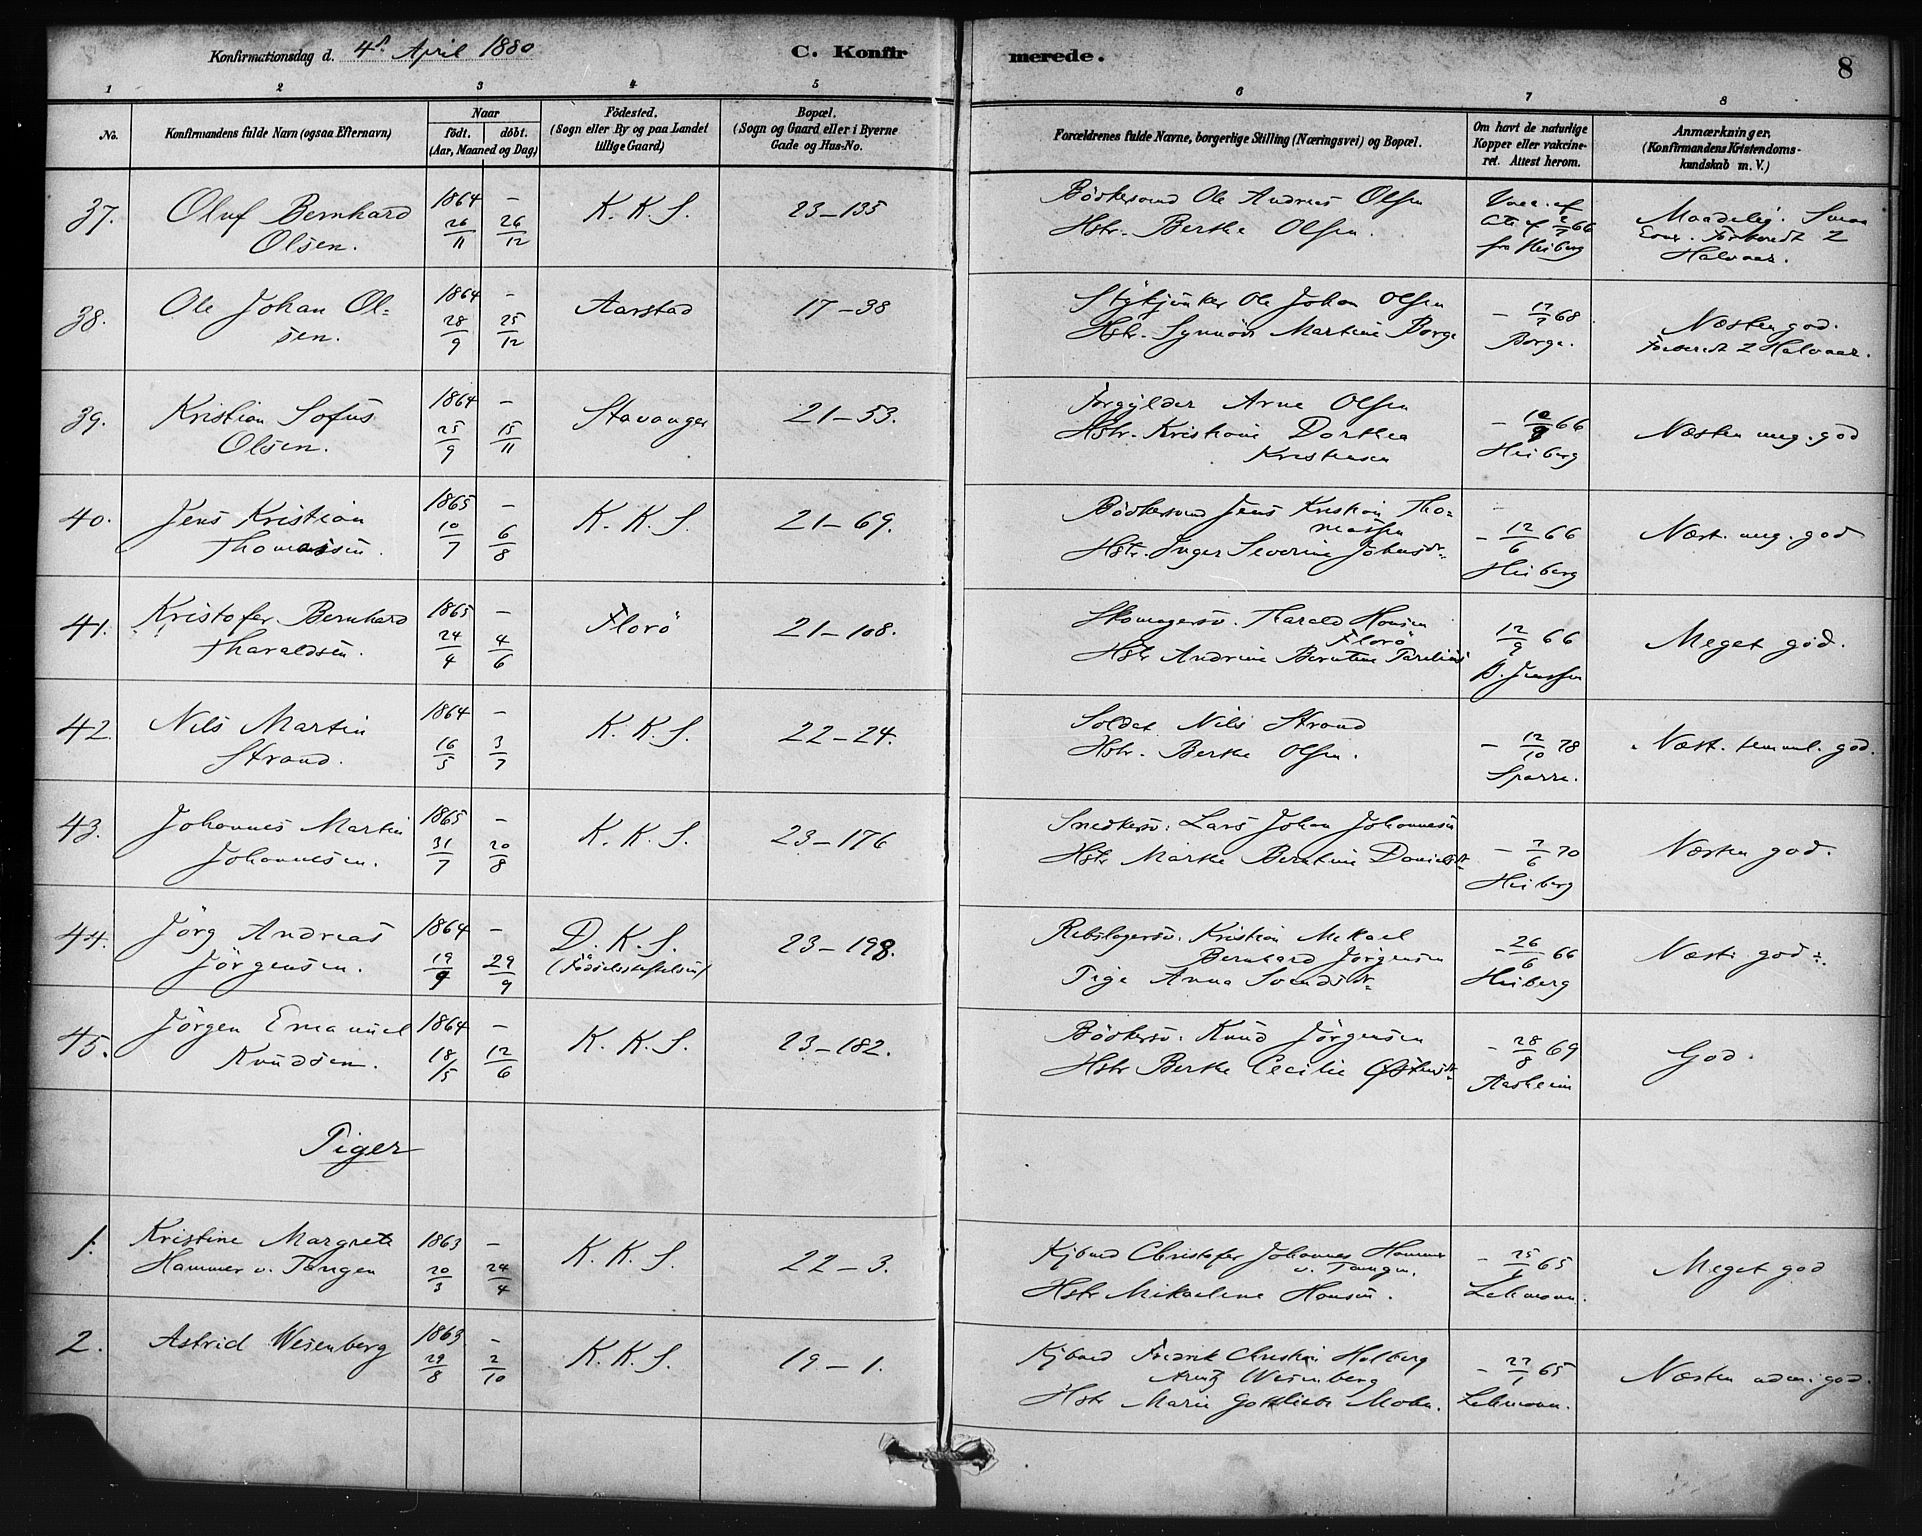 Konfirmationsdag d. 4de April 1880
C. Konfirmerede.
8
1 2 3 4 5 6 7 8
No.
Konfirmandens fulde Navn (ogsaa Efternavn)
Naar
födt. döbt.
(Aar, Maaned og Dag)
Födested.
(Sogn eller By og paa Landet
tillige Gaard)
Bopæl.
(Sogn og Gaard eller i Byerne
Gade og Hus-No.
Forældrenes fulde Navne, borgerlige Stilling (Næringsvei) og Bopæl.
Om havt de naturlige
Kopper eller vakcine-
ret. Attest herom.
Anmærkninger,
(Konfirmandens Kristendoms-
kundskab m. V.)
37. Oluf Bernhard
Olsen.
1864 –
26/11 26/12
K. K. S.
23–135
Bödkersvend Ole Andreas Olsen
Hstr. Berthe Olsen.
66
fra Heiberg
Maadelig. Smaa
Evner. Forberedt 2
Halvaar.
38. Ole Johan Ol-
sen.
1864 –
28/9 25/12
Aarstad
17–38
Stykjunker Ole Johan Olsen
Hstr. Synnöv Martine Borge
– 12/7 68
Borge.
Næsten god.
Forberedt 2 Halvaar.
39. Kristian Sofus
Olsen.
1864 –
25/9 15/11
Stavanger
21–53.
Forgylder Arne Olsen
Hstr. Kristiane Dorthea
Kristensen
– 10/9 66
Heiberg
Næsten meg. god
40. Jens Kristian
Thomassen.
1865 –
10/7 6/8
K. K. S.
21–69.
Bödkersvend Jens Kristian Tho-
massen
Hstr. Inger Severine Johnsdr.
– 12/6 66
Heiberg
Næst. meg. god
41. Kristofer Bernhard
Tharaldsen.
1865 –
24/4 4/6
Florö
21–108.
Skomagersv. Tharald Hansen
Florö
Hstr Andrine Berntine
12/9 66
B. Jenssen
Meget god.
42. Nils Martin
Strand.
1864 –
16/5 3/7
K. K. S.
22–24.
Soldat Nils Strand
Hstr. Berthe Olsen.
– 12/10 78
Sparre.
Næst. temml. god.
43. Johannes Martin
Johannesen.
1865 –
31/7 20/8
K. K. S.
23–176
Snedkersv. Lars Johan Johannesen
Hstr Marthe Berntine Danielsdr
– 7/6 70
Heiberg
Næsten god.
44. Jörg Andreas
Jörgensen.
1864 –
19/9 29/9
D. K. S.
(Födselsstiftelsen)
23–198.
Rebslagersv. Kristian Mikael
Bernhard Jörgensen
Pige Anna Svendsdr.
– 26/6 66
Heiberg
Næst. god
45. Jörgen Emanuel
Knudsen.
1864 –
18/5 12/6
K. K. S.
23–182.
Bödkersv. Knud Jörgensen
Hstr Berthe Cecilie Østensdr.
– 28/8 69
Aasheim
God.
Piger
1. Kristine Margrete
Hammer v. Tangen
1863 –
20/3 24/4
K. K. S.
22–3.
Kjbmd Christofer Johannes Hammer
v. Tangen.
Hstr Mikaeline Hansen.
65
Lehmann.
Meget god
2. Astrid Wesenberg
1863 –
29/8 2/10
K. K. S.
19–1.
Kjbmd Fredrik Christian Holberg
Arntz Wesenberg
Hstr Marie Gottliebe Mohn.
– 27/1 65
Lehmann.
Næsten udm. god.